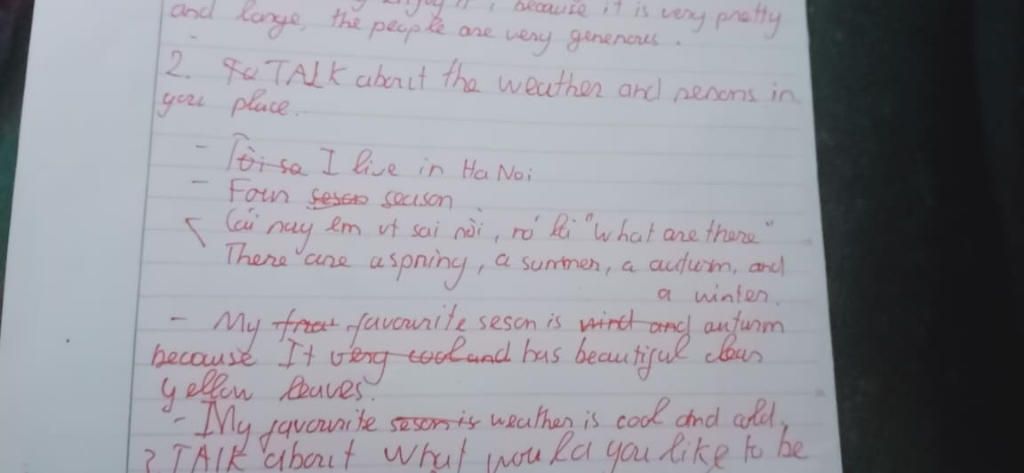 enjoy it, because it is very pretty
and large, the people are very generous.
2. TALK about the weather and sesons in
your place.
- Tôi sa I live in Ha Noi
- Four seson season
Cái nay em vt sai rồi, "what are there"
There are a spring, a summer, a autumn, and
a winter.
- My favourite seson is wind and autumn
because It very cool and has beautiful clear
yellow leaves.
- My favourite seson is weather is cool and cold,
TALK about What would you like to be